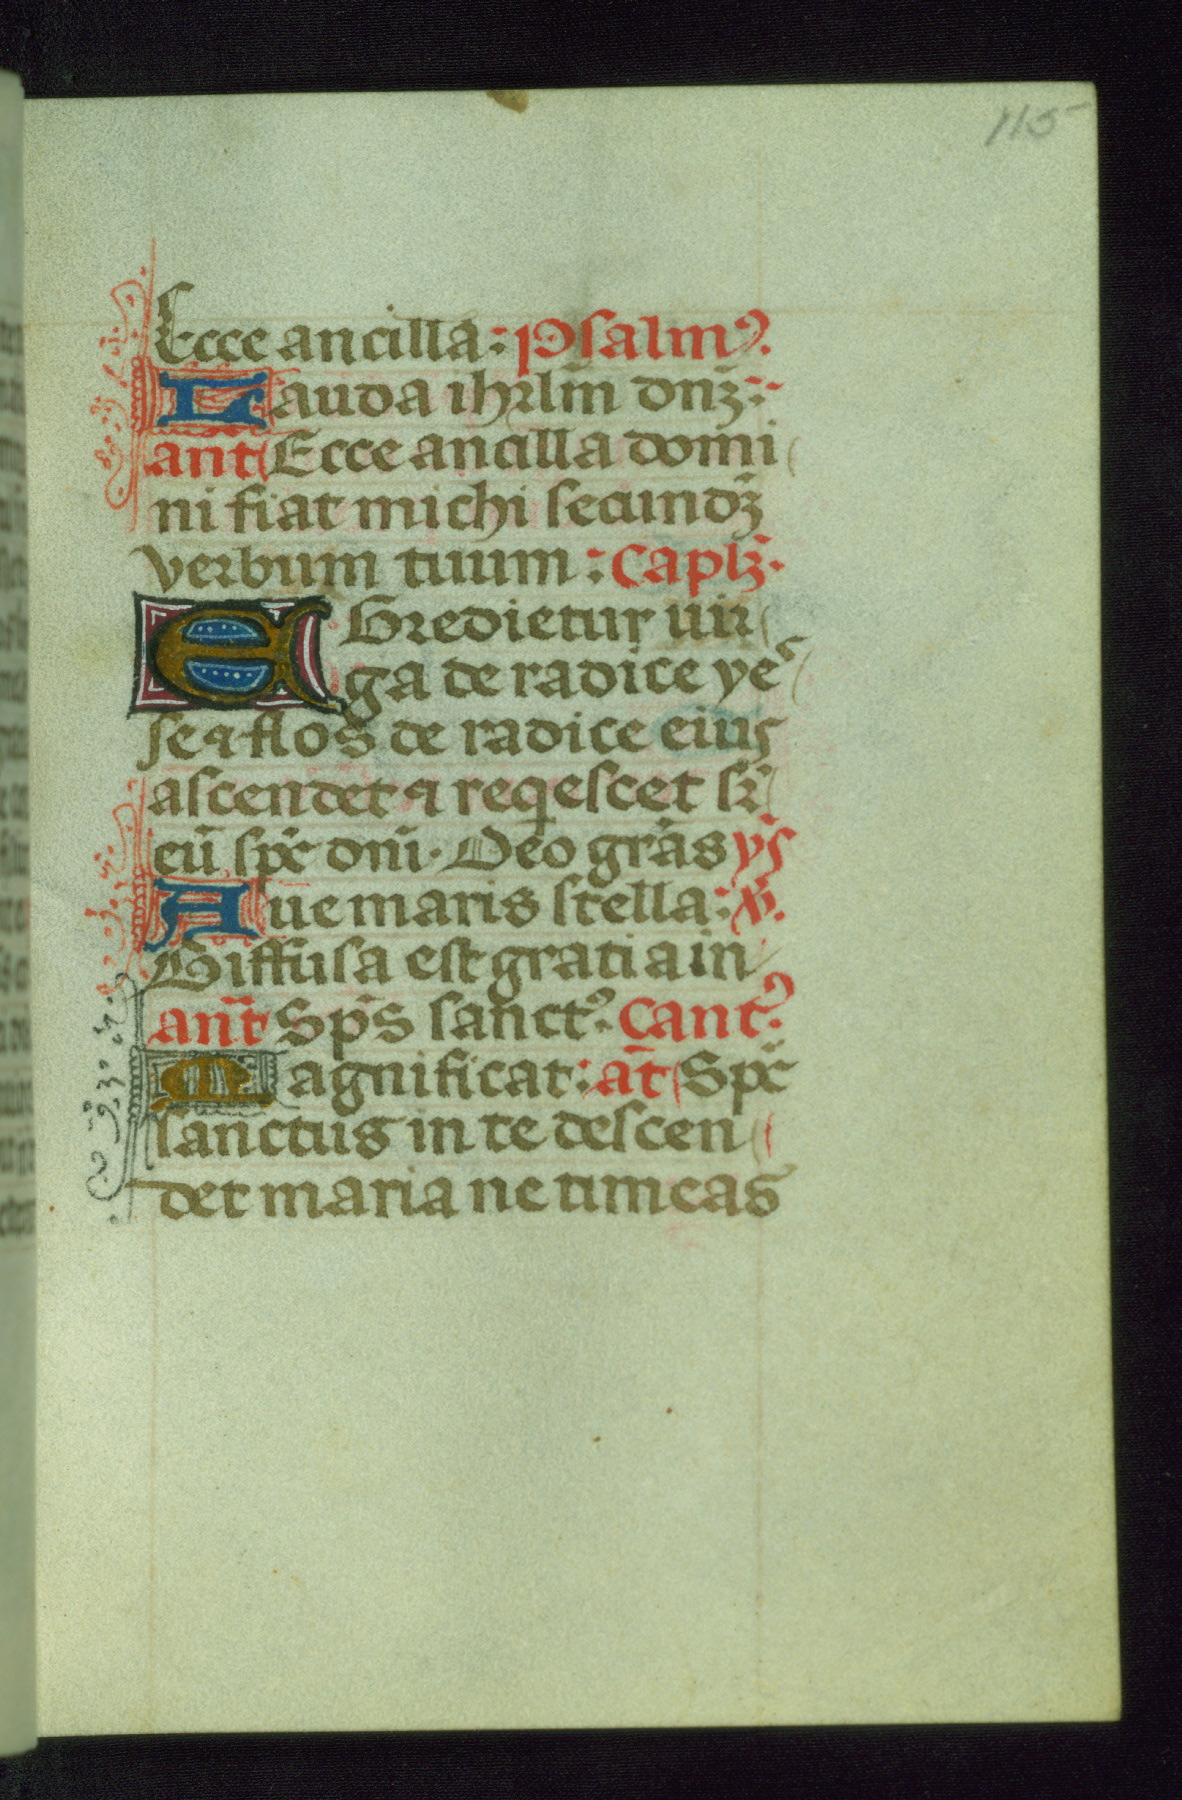 115
Ecce ancilla: Psalmꝰ.
Lauda ihrl̄m dnꝫ̄:
ant Ecce ancilla domi
ni fiat michi secundꝫ̄
verbum tuum: Caplꝫ̄.
EGredietur uir
ga de radice ye
se ⁊ flos de radice eius
ascendet ⁊ reqescet sr̄
eū sp̄c dnī. Deo grās ym̄s
Aue maris stella: ℣.
Diffusa est gratia in
an̄t Sp̄s sanctꝰ. Cantꝰ.
Magnificat: at̄ Sp̄c
sanctus in te descen
det maria ne timeas